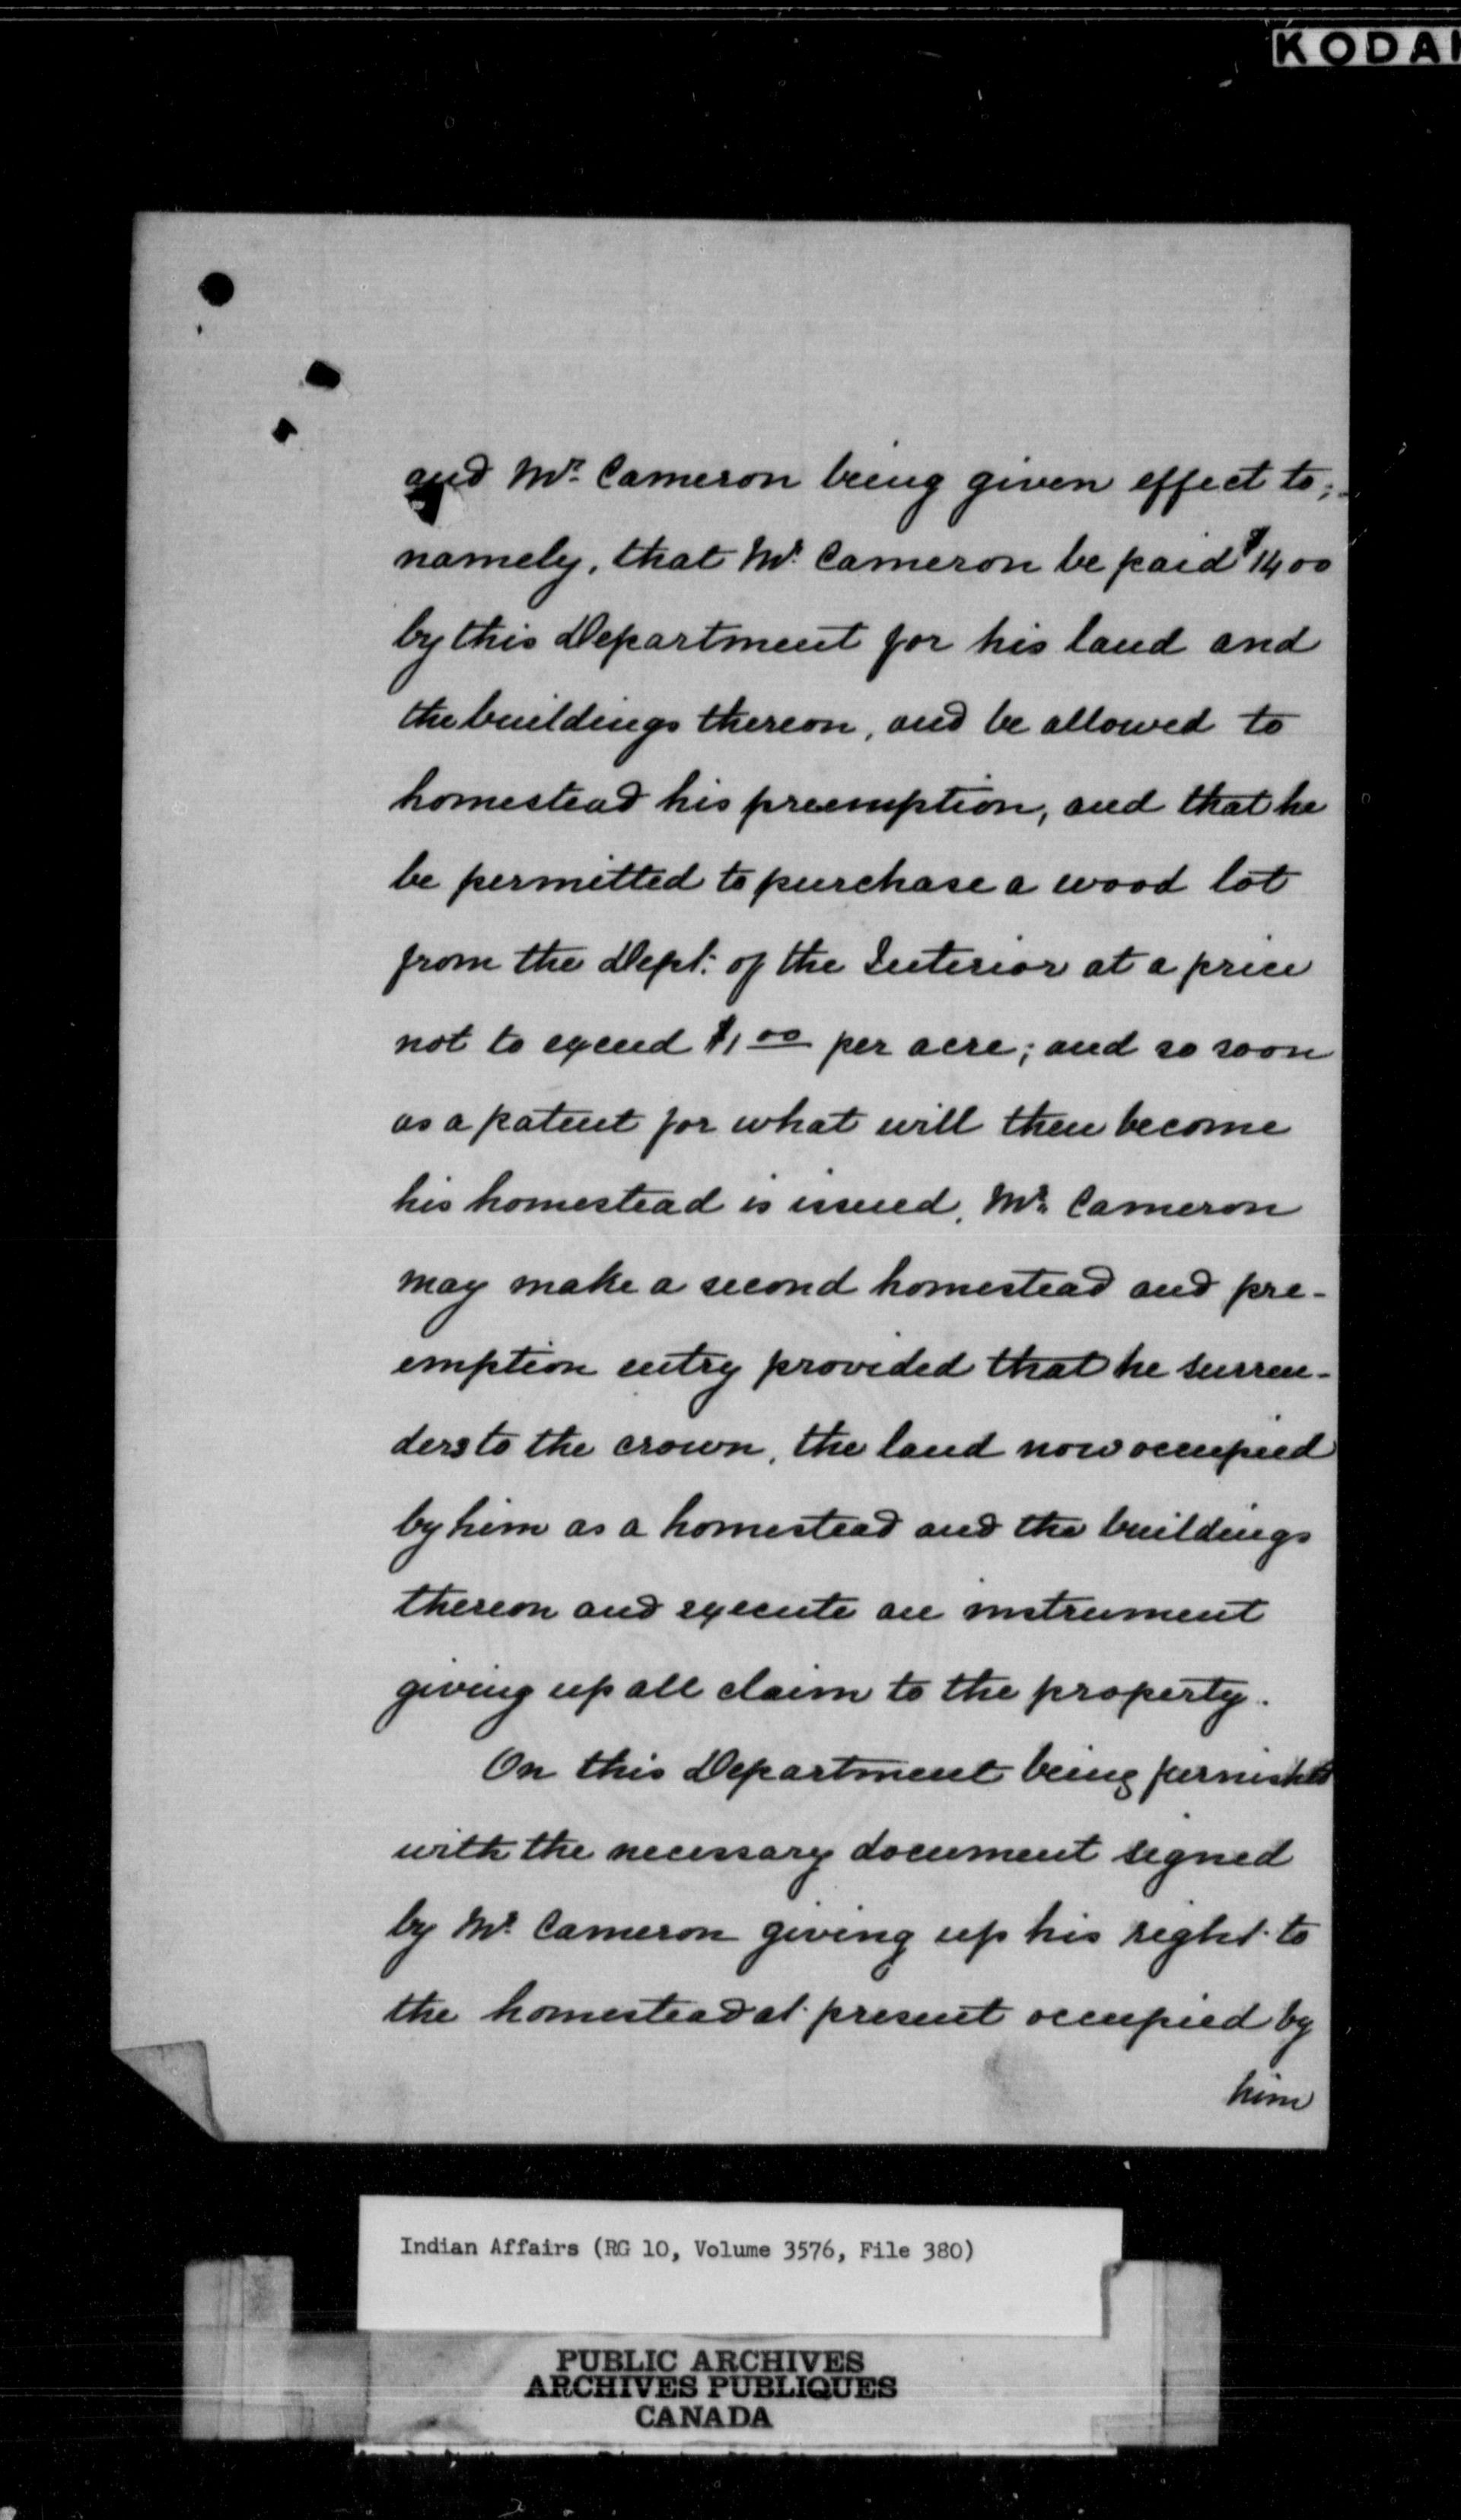 KODAK
and Mr. Cameron being given effect to;
namely, that Mr. Cameron be paid $1400
by this Department for his land and
the buildings thereon, and be allowed to
homestead his preemption, and that he
be permitted to purchase a wood lot
from the Dept. of the Interior at a price
not to exceed $1.00 per acre; and so soon
as a patent for what will then become
his homestead is issued, Mr. Cameron
may make a second homestead and pre-
emption entry provided that he surren-
ders to the crown, the land now occupied
by him as a homestead and the buildings
thereon and execute an instrument
giving up all claim to the property.
On this Department being furnished
with the necessary document signed
by Mr. Cameron giving up his right to
the homestead at present occupied by
him
Indian Affairs (RG 10, Volume 3576, File 380)
PUBLIC ARCHIVES
ARCHIVES PUBLIQUES
CANADA